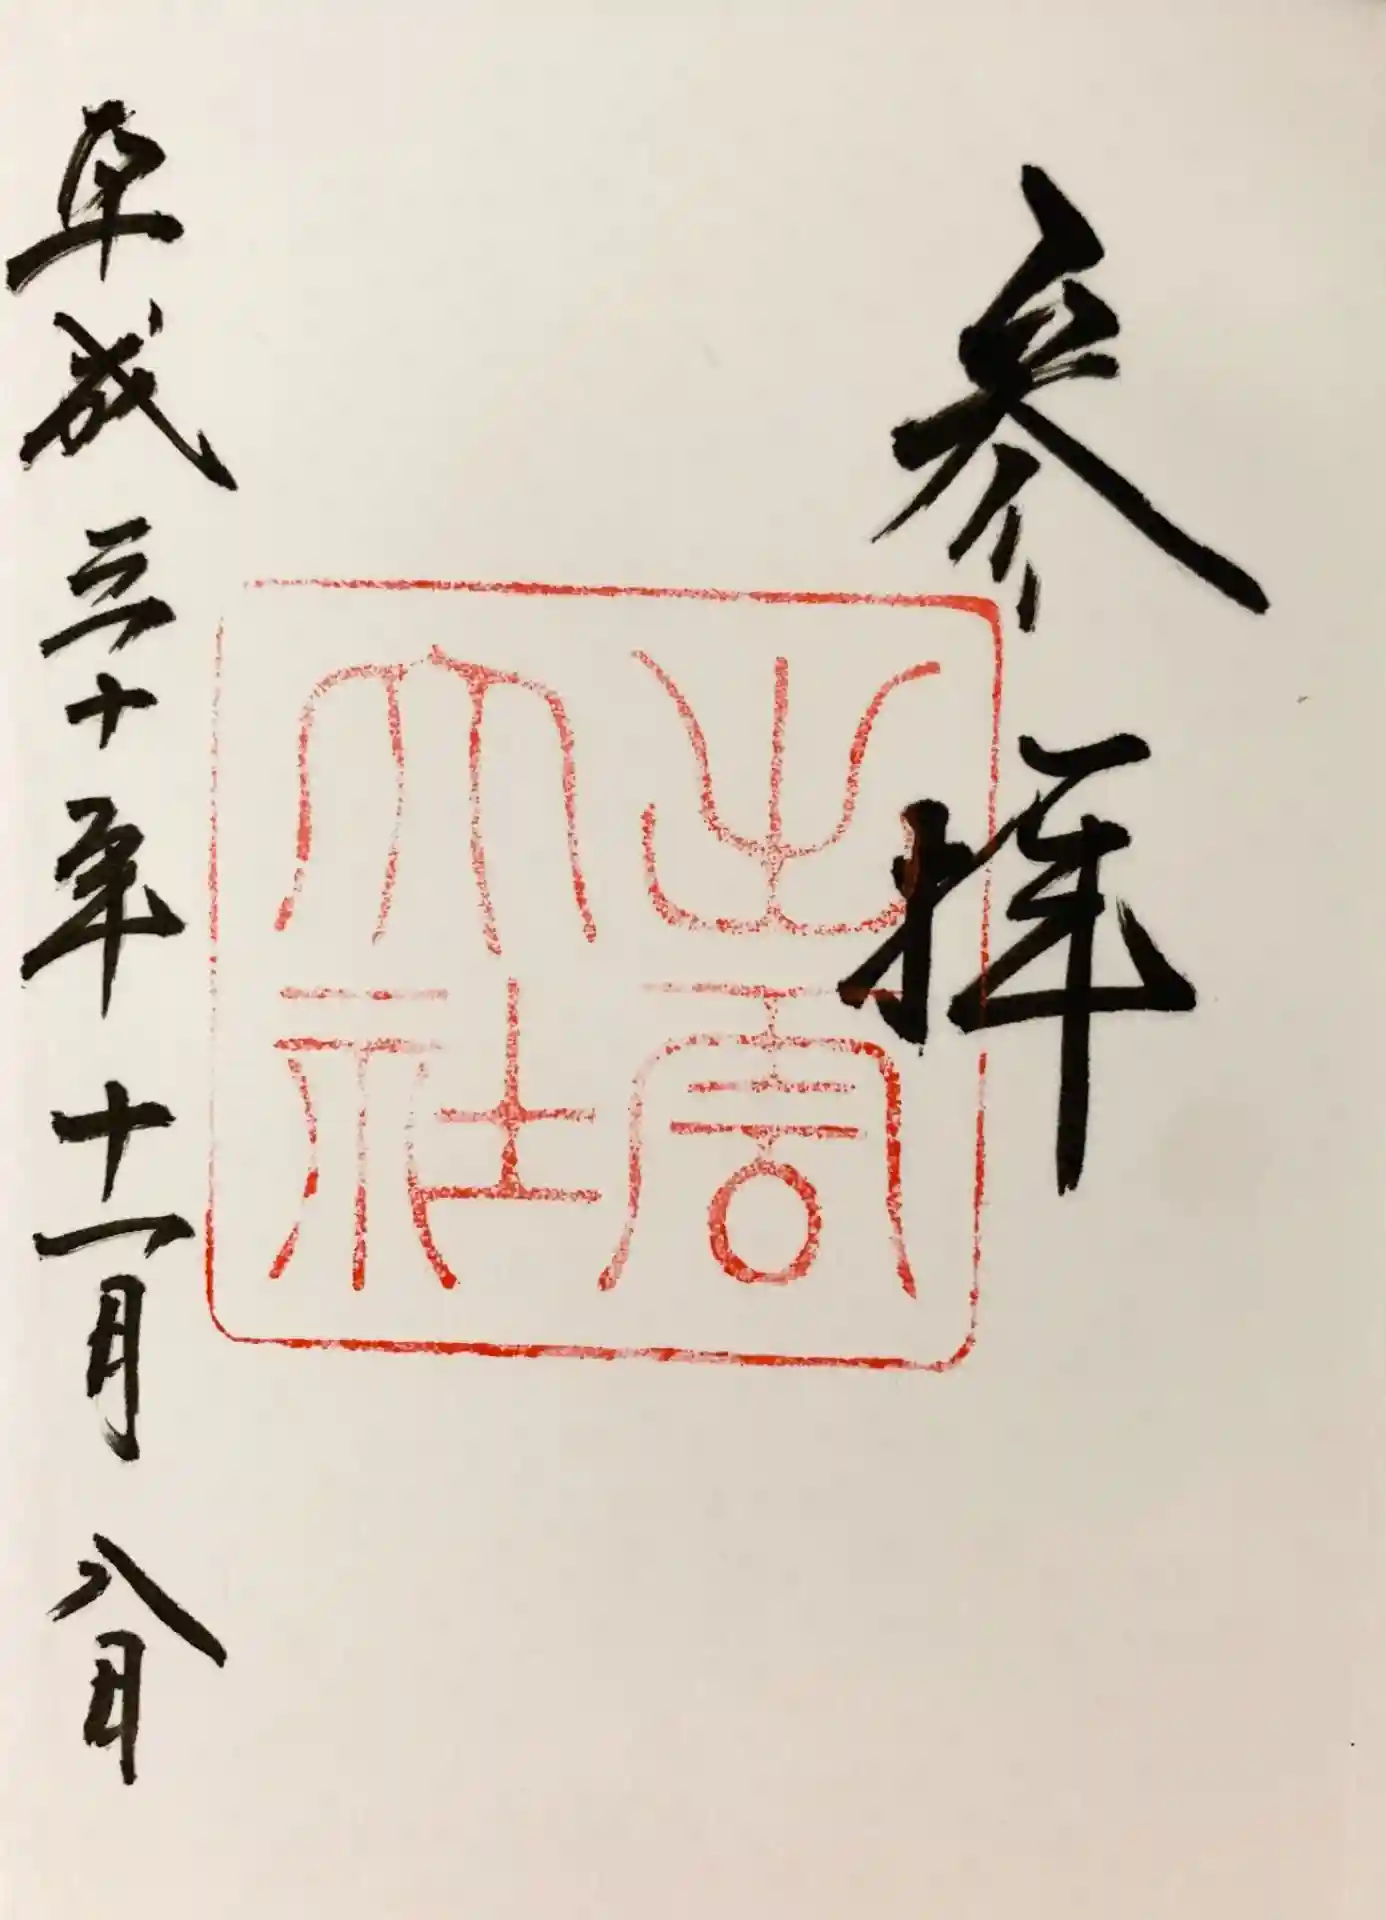 参拝
出雲大社
平成三十年十一月八日